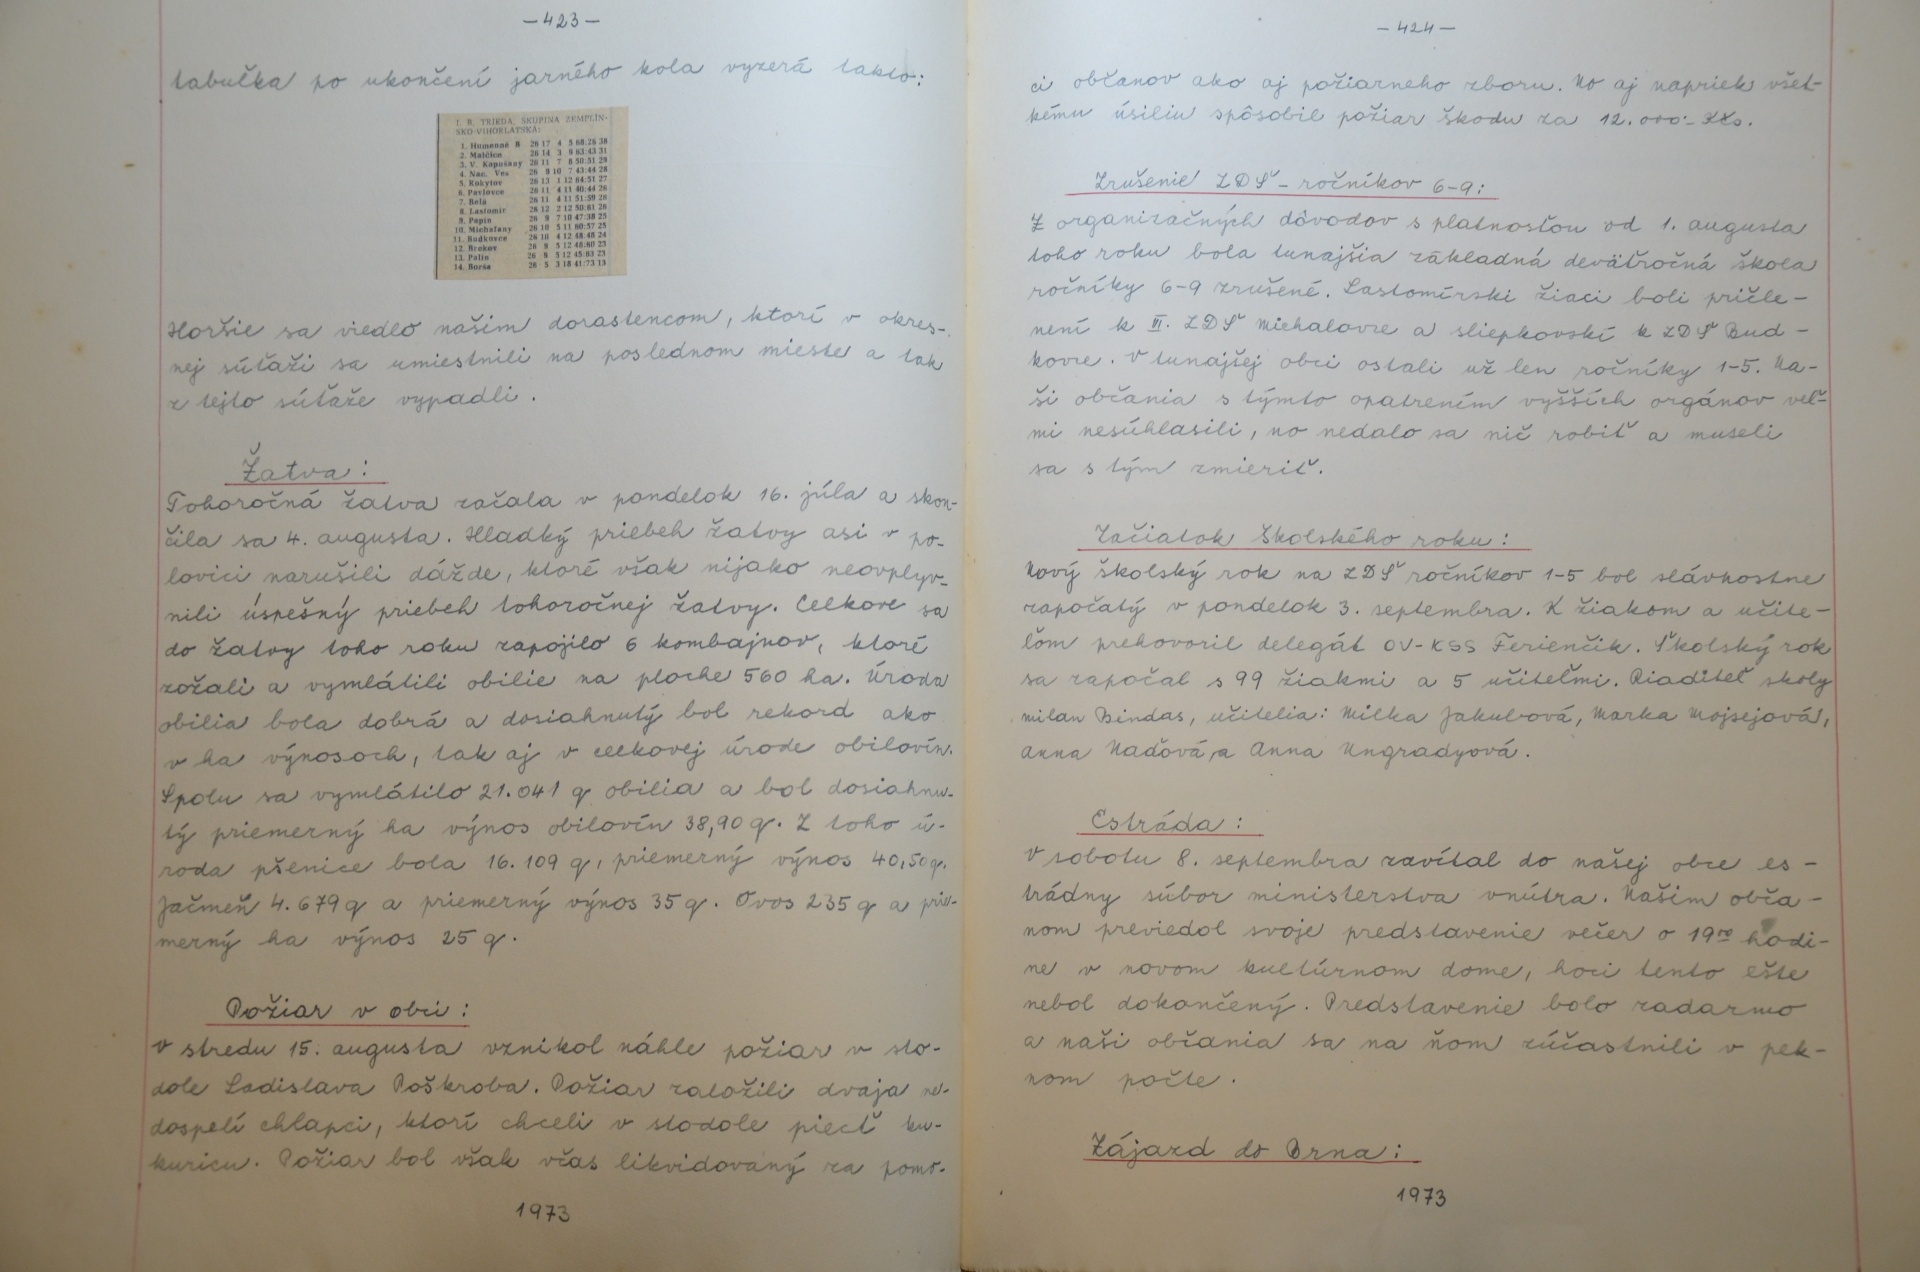 –423–
tabuľka po ukončení jarného kola vyzerá takto:
I. B. TRIEDA, SKUPINA ZEMPLÍN-
SKO-VIHORLATSKÁ:
1. Humenné B 26 17 4 5 68:26 38
2. Malčice 26 14 3 9 63:43 31
3. V. Kapušany 26 11 7 8 50:51 29
4. Nac. Ves 26 8 10 7 43:44 28
5. Rokytov 26 13 1 12 64:51 27
6. Pavlovce 26 11 4 11 40:44 26
7. Belá 26 11 4 11 51:59 26
8. Lastomír 26 12 2 12 50:61 26
9. Papín 26 9 7 10 47:38 25
10. Michaľany 26 10 5 11 60:57 25
11. Budkovce 26 10 4 12 48:48 24
12. Brekov 26 9 5 12 48:60 23
13. Palín 26 9 5 12 45:63 23
14. Borša 26 5 3 18 41:73 13
Horšie sa viedlo našim dorastencom, ktorí v okres-
nej súťaži sa umiestnili na poslednom mieste a tak
z tejto súťaže vypadli.
Žatva:
Tohoročná žatva začala v pondelok 16. júla a skon-
čila sa 4. augusta. Hladký priebeh žatvy asi v po-
lovici narušili dážde, ktoré však nijako neovplyv-
nili úspešný priebeh tohoročnej žatvy. Celkove sa
do žatvy toho roku zapojilo 6 kombajnov, ktoré
zožali a vymlátili obilie na ploche 560 ha. Úroda
obilia bola dobrá a dosiahnutý bol rekord ako
v ha výnosoch, tak aj v celkovej úrode obilovín.
Spolu sa vymlátilo 21.041 q obilia a bol dosiahnu-
tý priemerný ha výnos obilovín 38,90 q. Z toho ú-
roda pšenice bola 16.109 q, priemerný výnos 40,50 q.
Jačmeň 4.679 q a priemerný výnos 35 q. Ovos 235 q a prie-
merný ha výnos 25 q.
Požiar v obci:
V stredu 15. augusta vznikol náhle požiar v sto-
dole Ladislava Poškroba. Požiar založili dvaja ne-
dospelí chlapci, ktorí chceli v stodole piecť ku-
kuricu. Požiar bol však včas likvidovaný za pomo-
1973
–424–
ci občanov ako aj požiarneho zboru. No aj napriek všet-
kému úsiliu spôsobil požiar škodu za 12.000.- Kčs.
Zrušenie ZDŠ – ročníkov 6-9:
Z organizačných dôvodov s platnosťou od 1. augusta
toho roku bola tunajšia základná deväťročná škola
ročníky 6-9 zrušené. Lastomírski žiaci boli pričle-
není k VI. ZDŠ Michalovce a sliepkovskí k ZDŠ Bud-
kovce. V tunajšej obci ostali už len ročníky 1-5. Na-
ši občania s týmto opatrením vyšších orgánov veľ-
mi nesúhlasili, no nedalo sa nič robiť a museli
sa s tým zmieriť.
Začiatok školského roku:
Nový školský rok na ZDŠ ročníkov 1-5 bol slávnostne
započatý v pondelok 3. septembra. K žiakom a učite-
ľom prehovoril delegát OV-KSS Ferienčík. Školský rok
sa započal s 99 žiakmi a 5 učiteľmi. Riaditeľ školy
Milan Bindas, učitelia: Milka Jakubová, Marka Mojsejová,
Anna Naďová, a Anna Ungradyová.
Estráda:
V sobotu 8. septembra zavítal do našej obce es-
trádny súbor ministerstva vnútra. Našim obča-
nom previedol svoje predstavenie večer o 19⁰⁰ hodi-
ne v novom kultúrnom dome, hoci tento ešte
nebol dokončený. Predstavenie bolo zadarmo
a naši občania sa na ňom zúčastnili v pek-
nom počte.
Zájazd do Brna:
1973